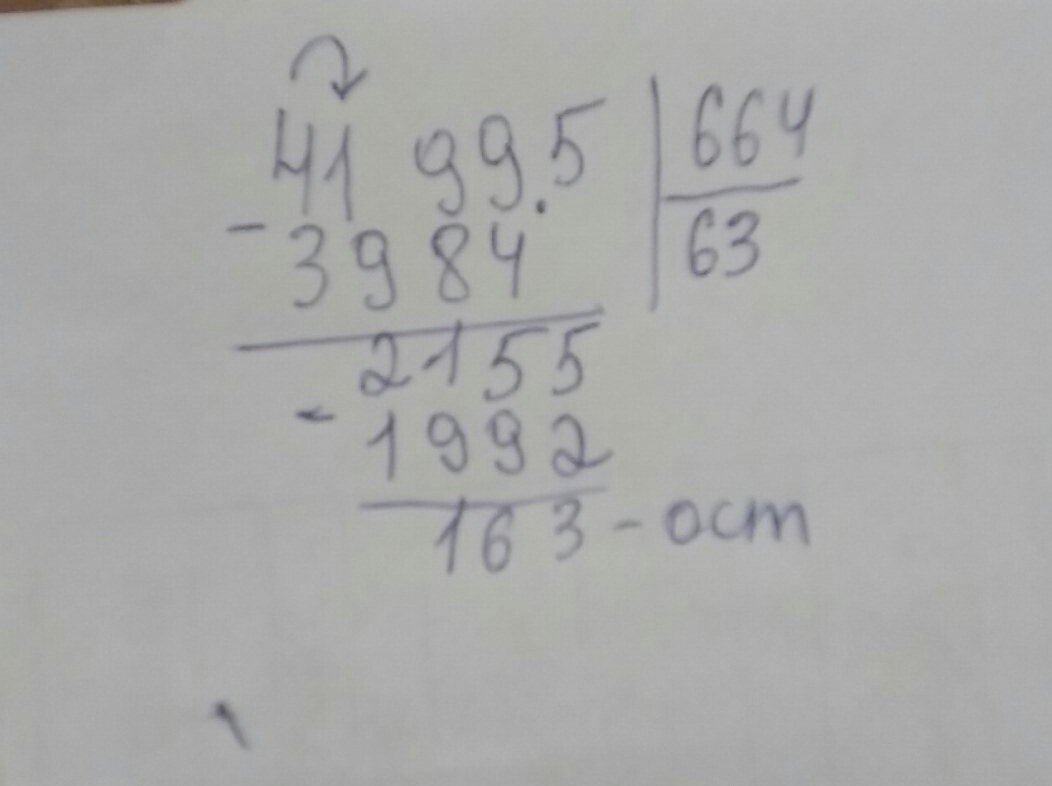 41 99.5 | 664
- 3984 | 63
2155
- 1992
163 - ост